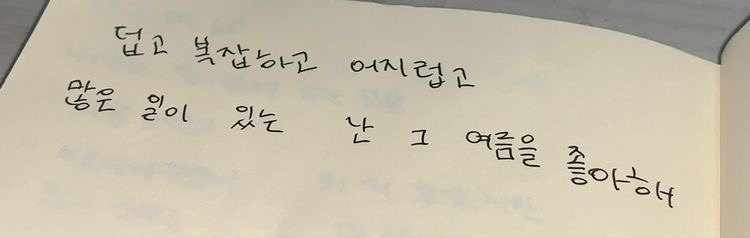 덥고 복잡하고 어지럽고
많은 일이 있는 난 그 여름을 좋아해